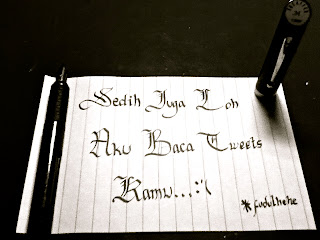 Sedih Juga Loh
Aku Baca Tweets
Kamu...:'(
*fudulhehe